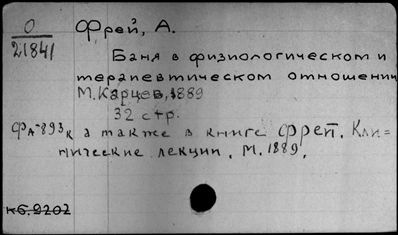 О
21841
Фрей, А.
Баня в физиологическом и
терапевтическом отношении
М. Карцев, 1889
32 стр.
ФА-893к а также в книге Фрей. Кли=
нические лекции. М. 1889.
к6.2202